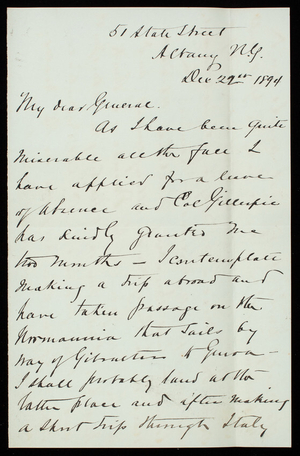 51 State Street
Albany N.Y.
Dec 29th 1894
My dear General.
As I have been quite
miserable all the fall I
have applied for a leave
of absence and Col Gillespie
has kindly granted me
two months – I contemplate
making a trip abroad and
have taken passage on the
Normannia that sails by
way of Gibraltar to Genoa –
I shall probably land at the
latter place and after making
a short trip through Italy